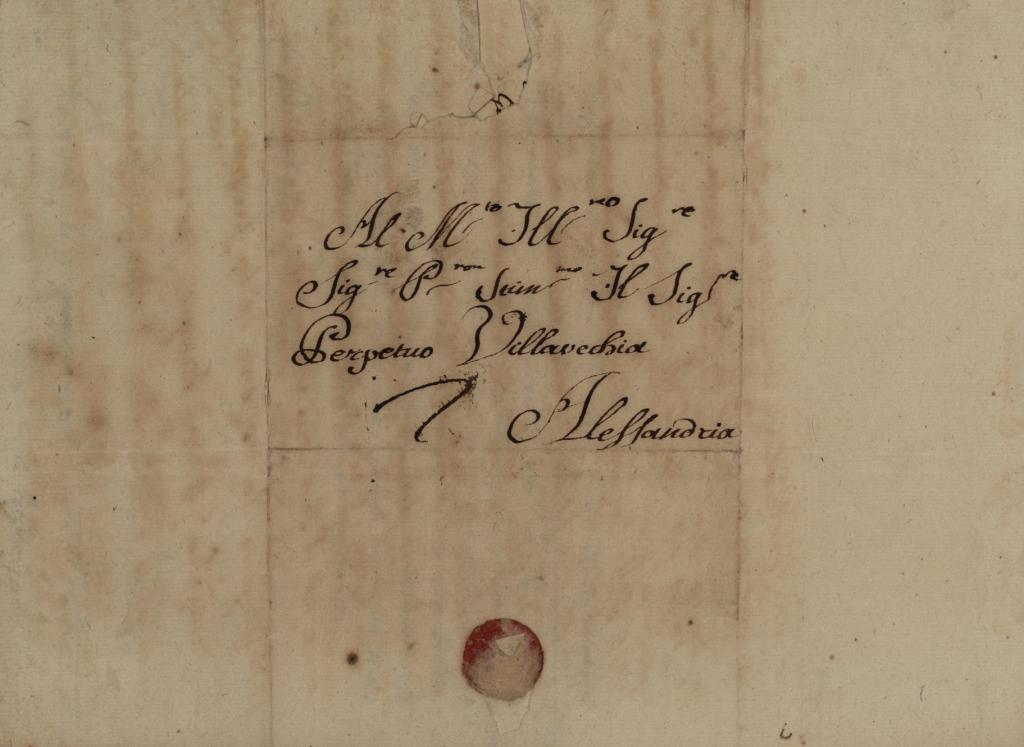 Al M.to Ill.mo Sig.re
Sig.re P.ron Stim.mo Il Sig.r
Perpetuo Villavechia
Alessandria